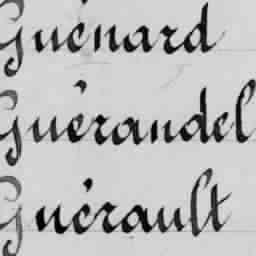 Guénard
Guérandel
Guérault